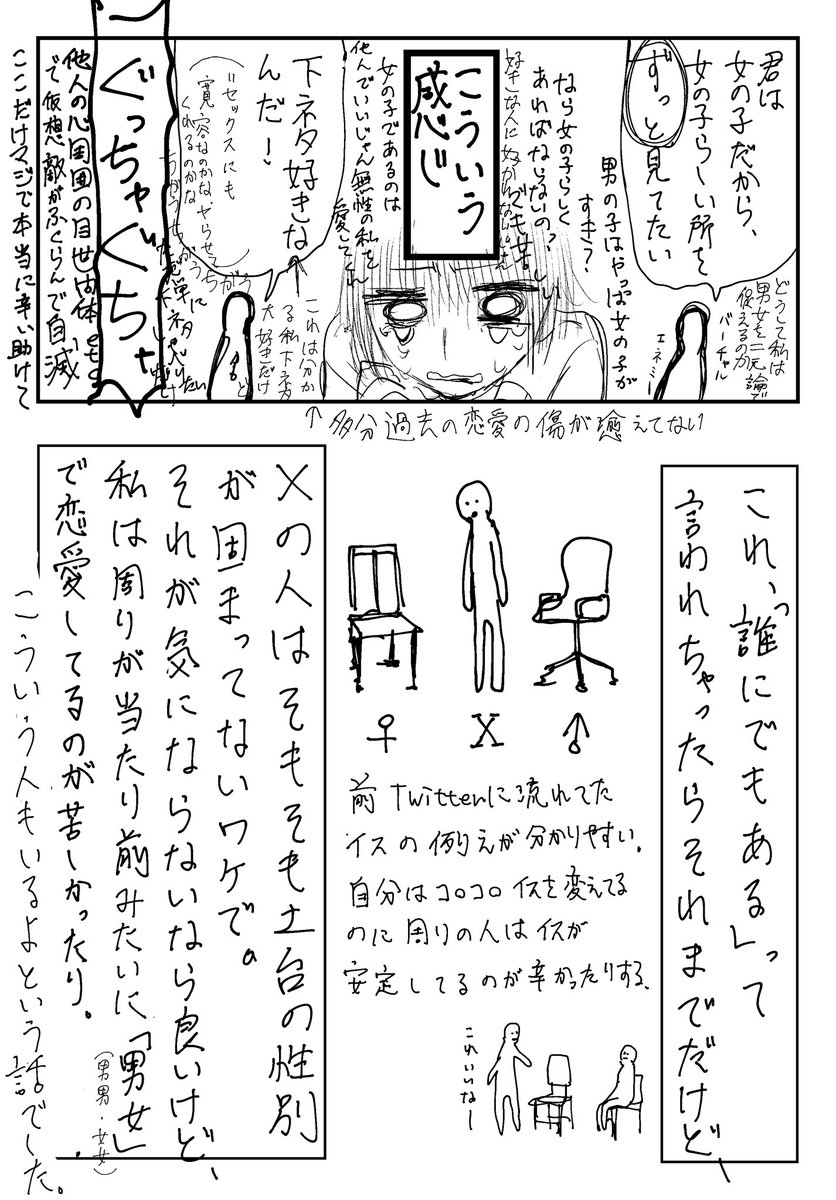 君は
女の子だから、
女の子らしい所を
ずっと見てたい
どうして私は
男女を二元論で
捉えるのか
バーチャル
エネミー
男の子はやっぱ女の子が
すき？
なら女の子らしく
あればならないの？
好きな人に好かれないと
でも苦しい
こういう
感じ
女の子であるのは
他人でいいじゃん無性の私を
愛してくれ
下ネタ好きな
んだー！
これは分か
る私下ネタ
大好きだけ
ど
"セックスにも
寛容なのかな、ヤらせて
くれるのかな
ちがう
ちがう
ぐっちゃぐちゃ
他人の心周囲の目世間体etc
で仮想敵がふくらんで自滅
ここだけマジで本当に辛い助けて
↑多分過去の恋愛の傷が癒えてない
これ、「誰にでもある」って
言われちゃったらそれまでだけど、
♀ X ♂
前Twitterに流れてた
イスの例えが分かりやすい。
自分はコロコロイスを変えてる
のに周りの人はイスが
安定してるのが辛かったりする、
これいいなー
Xの人はそもそも土台の性別
が固まってないワケで。
それが気にならないなら良いけど、
私は周りが当たり前みたいに「男女」
(男男・女女)
で恋愛してるのが苦しかったり。
こういう人もいるよという話でした。